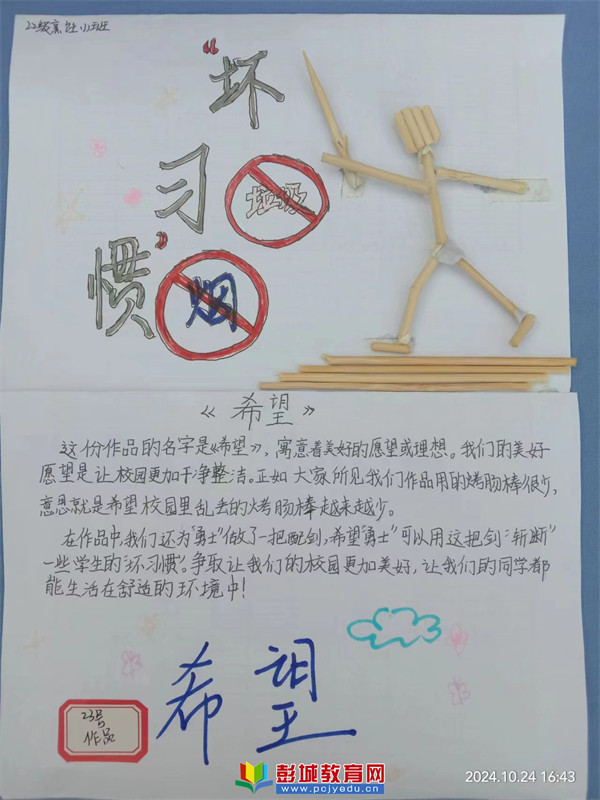 22级烹饪(1)班
“坏
习
惯”
垃圾
烟
《希望》
这份作品的名字是《希望》，寓意着美好的愿望或理想。我们的美好
愿望是让校园更加干净整洁。正如大家所见我们作品用的烤肠棒很少，
意思就是希望校园里乱丢的烤肠棒越来越少。
在作品中，我们还为“勇士”做了一把配剑，希望“勇士”可以用这把剑“斩断”
一些学生的“坏习惯”。争取让我们的校园更加美好，让我们的同学都
能生活在舒适的环境中！
希望
23号
作品
彭城教育网
www.pcjyedu.cn
2024.10.24 16:43